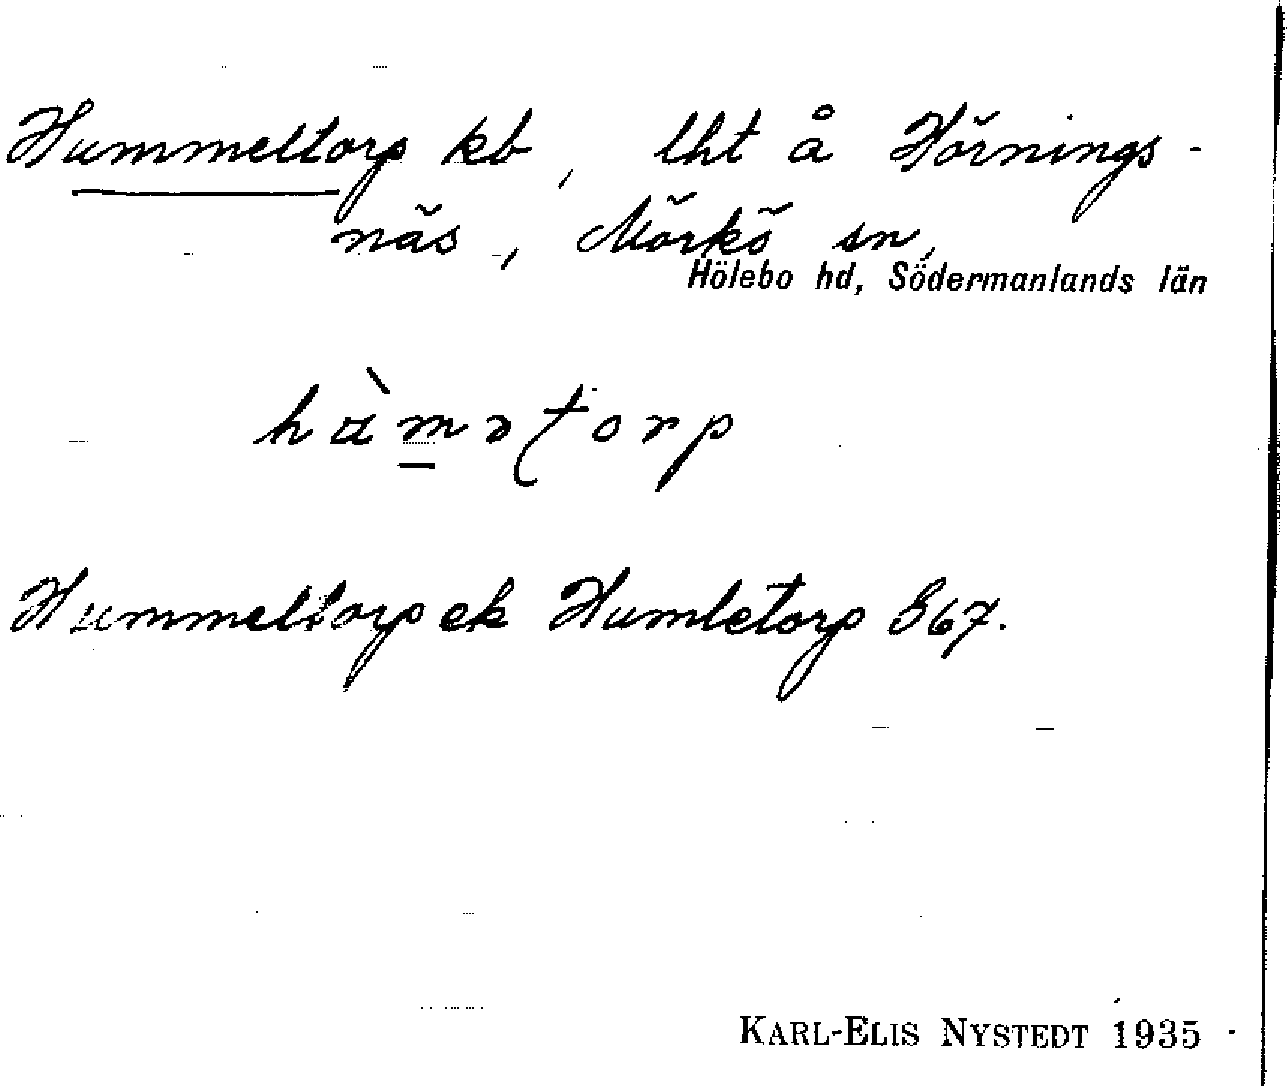 Hummeltorp kb, lht å Hörnings-
näs, Mörkö sn,
Hölebo hd, Södermanlands län
hùmətorp
Hummeltorp ek Humletorp S67.
KARL-ELIS NYSTEDT 1935